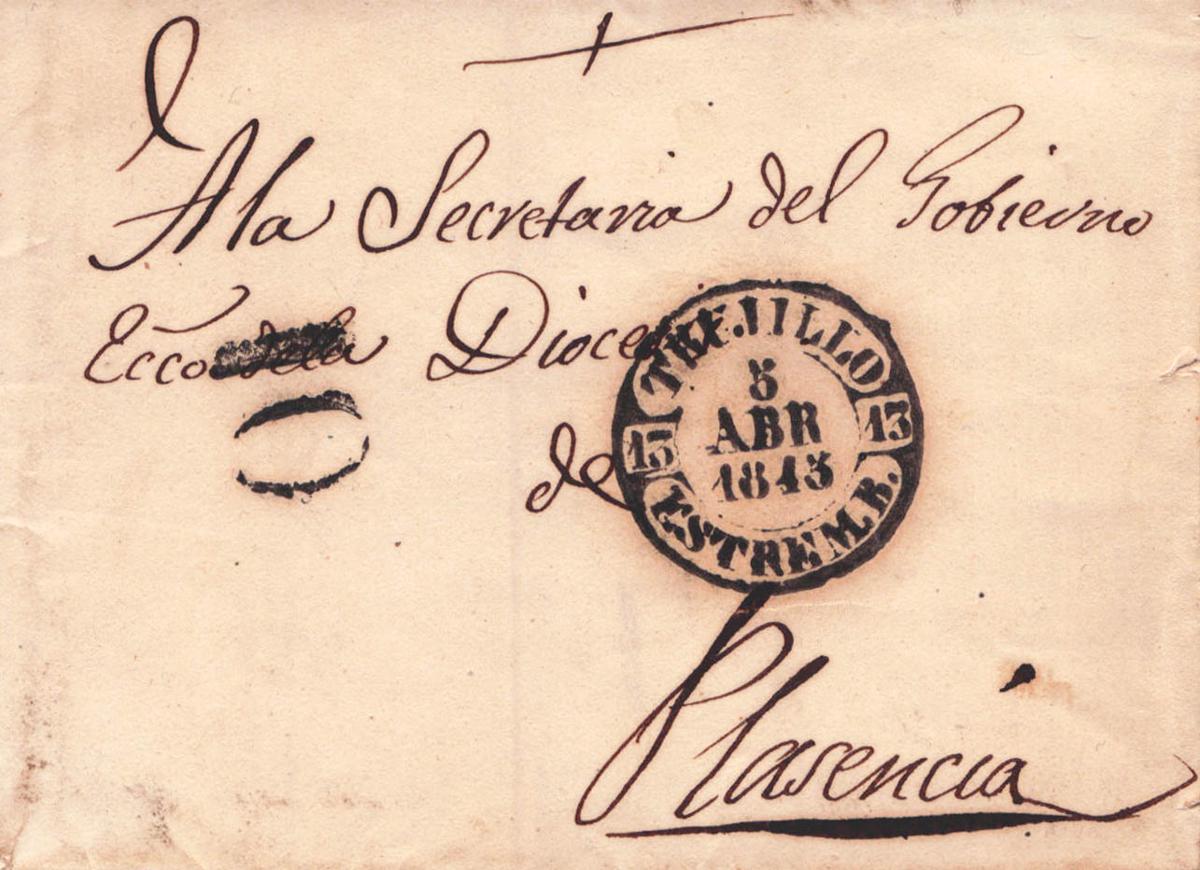 A la Secretaria del Gobierno
Ecco de la Dioce
de
TRUJILLO
5
ABR
1845
13 13
ESTREMR.
Plasencia